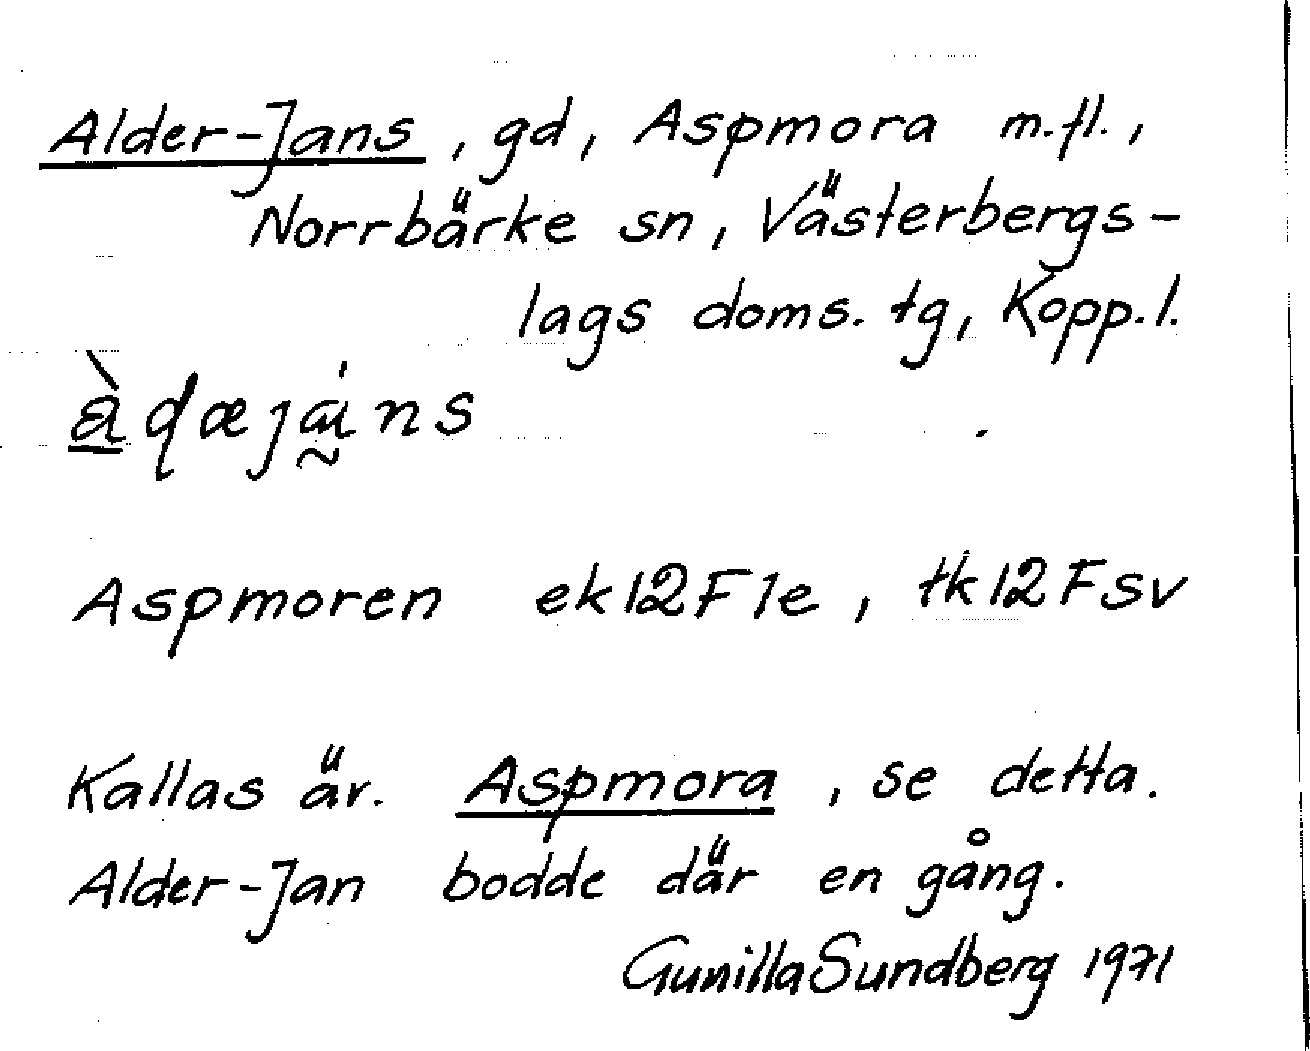 Alder-Jans, gd, Aspmora m.fl.,
Norrbärke sn, Västerbergs-
lags doms. tg, Kopp.l.
Aspmoren ek12F1e, tk12Fsv
Kallas äv. Aspmora, se detta.
Alder-Jan bodde där en gång.
Gunilla Sundberg 1971